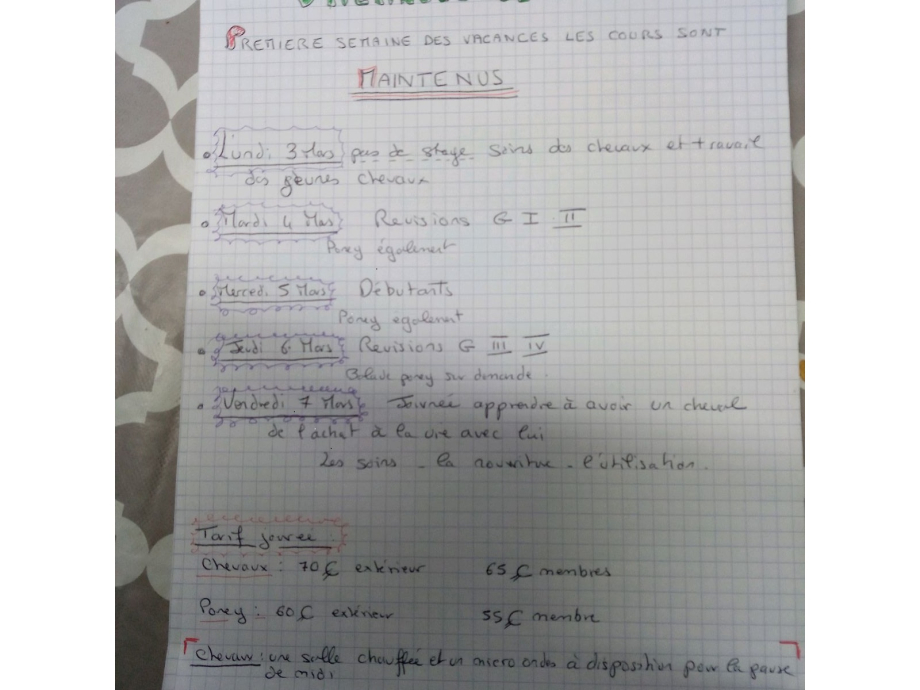 PREMIERE SEMAINE DES VACANCES LES COURS SONT
MAINTENUS
Lundi 3 Mars pas de stage soins des chevaux et travail
des jeunes chevaux
Mardi 4 Mars Revisions G I II
Poney également
Mercedi 5 Mars Débutants
Poney egalement
Jeudi 6 Mars Revisions G III IV
Balade poney sur demande.
Vendredi 7 Mars Journée apprendre à avoir un cheval
de l'achat à la vie avec lui
Les soins - la nourriture - l'utilisation.
Tarif journee :
Chevaux : 70 € extérieur 65 € membres
Poney : 60 € extérieur 55 € membre
Chevaux : une salle chauffée et un micro ondes à disposition pour la pause
de midi